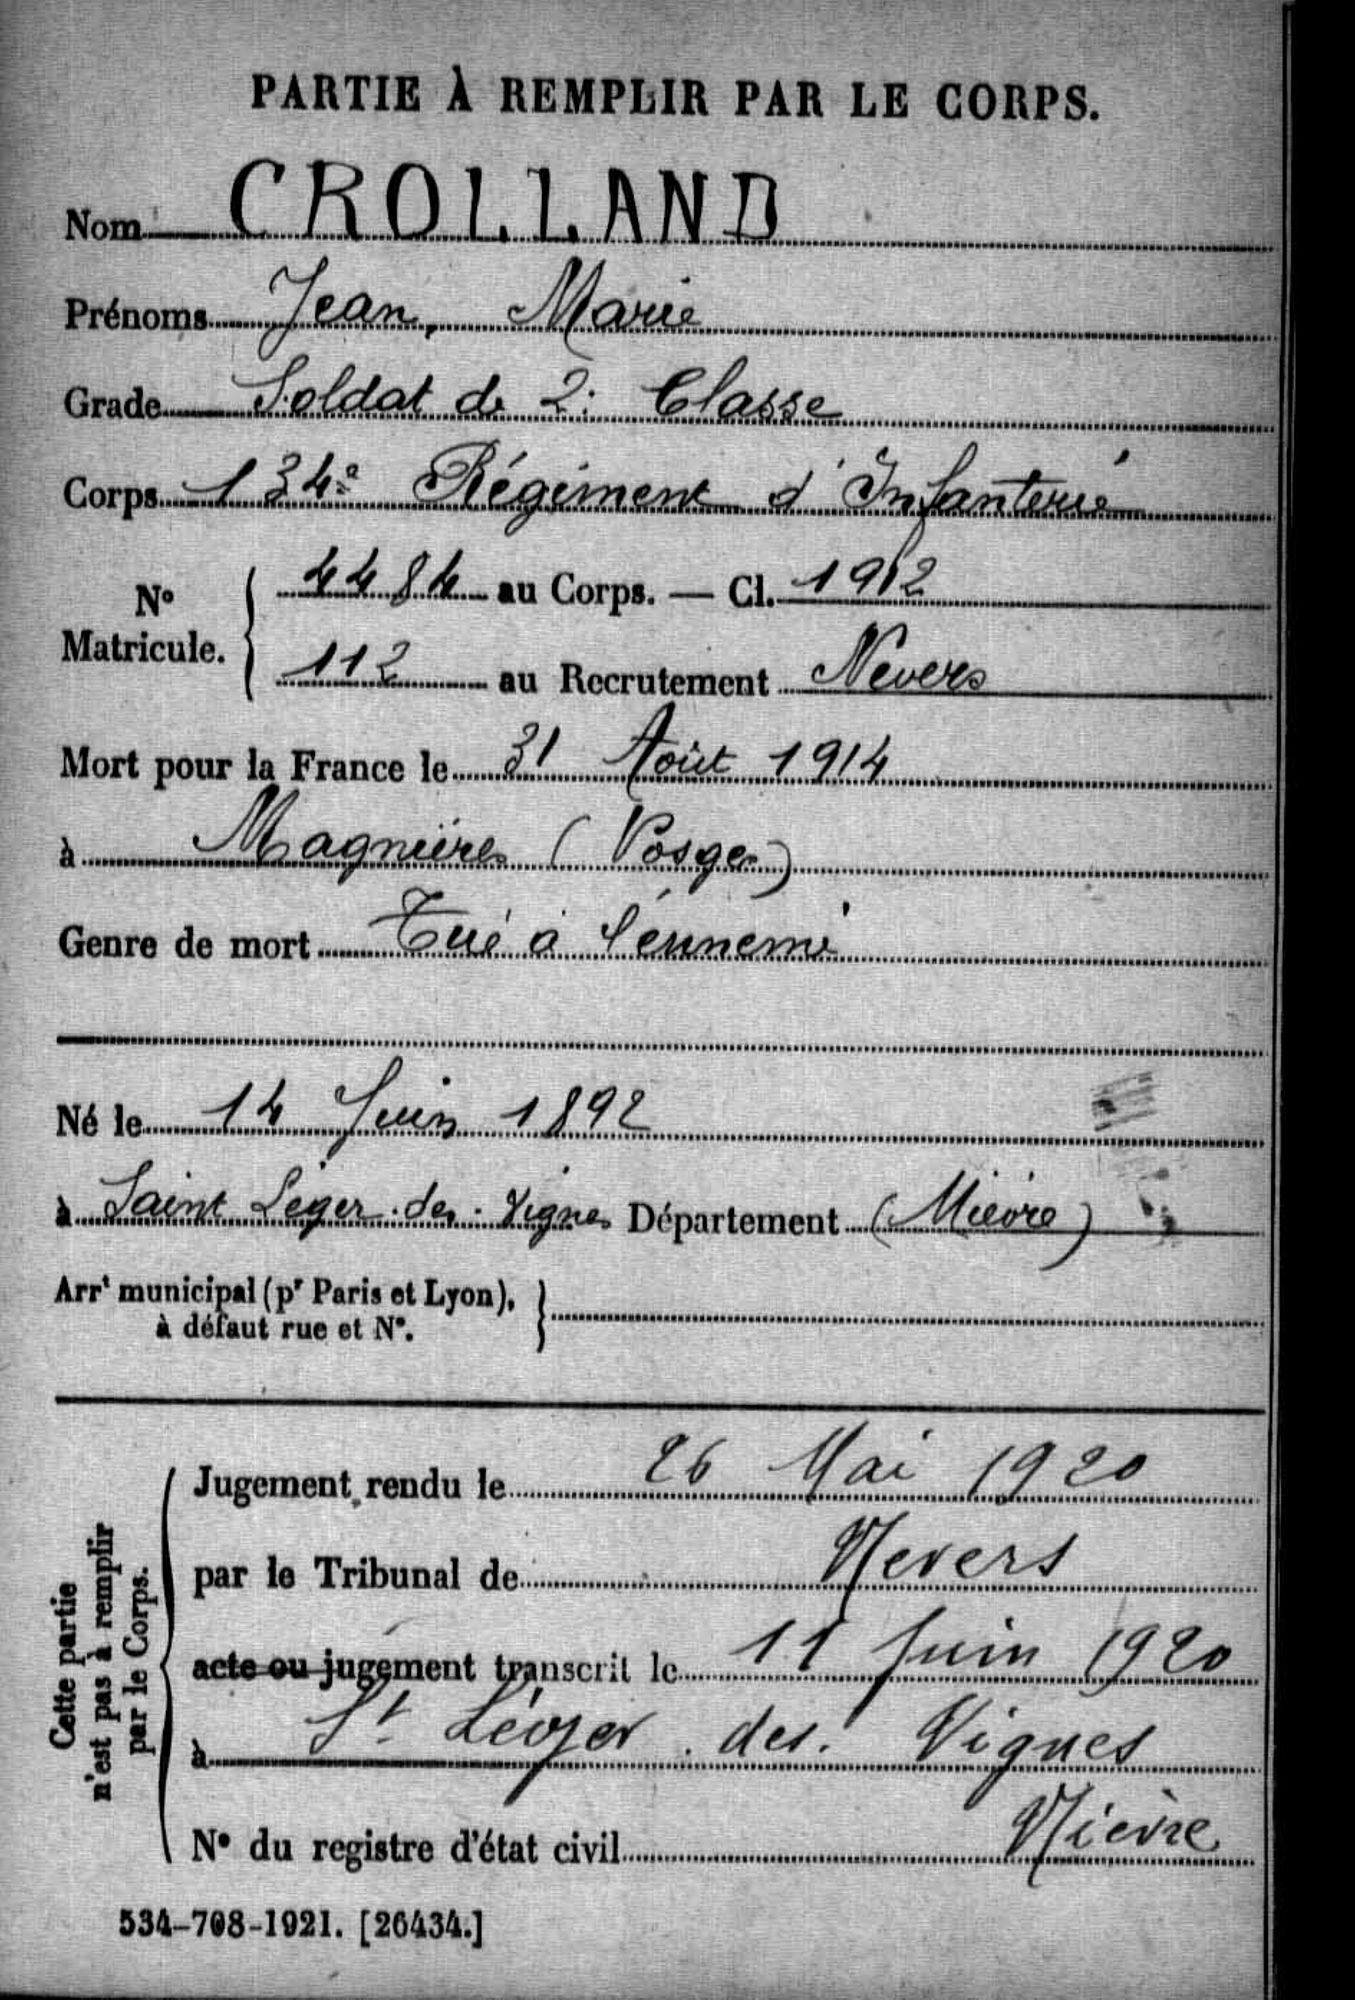 PARTIE À REMPLIR PAR LE CORPS.
Nom CROLLAND
Prénoms Jean, Marie
Grade Soldat de 2e Classe
Corps 134e Régiment d'Infanterie
N° Matricule. 4484 au Corps. — Cl. 1912
112 au Recrutement Nevers
Mort pour la France le 31 Août 1914
à Magnières (Vosges)
Genre de mort Tué à l'ennemi
Né le 14 Juin 1892
à Saint Léger-des-Vignes Département (Nièvre)
Arrt municipal (pr Paris et Lyon),
à défaut rue et N°.
Cette partie
n'est pas à remplir
par le Corps.
Jugement rendu le 26 Mai 1920
par le Tribunal de Nevers
acte ou jugement transcrit le 11 Juin 1920
à St Léger des Vignes
N° du registre d'état civil Nièvre
534-708-1921. [26434.]